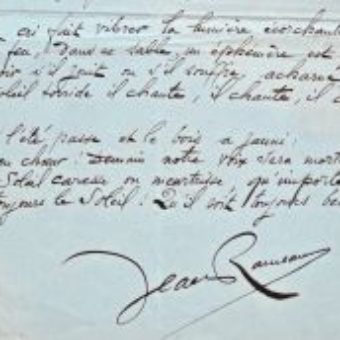 cri fait vibrer la lumière écorchante
feu, Dans ce sable, un éphémère est
s'il jouit ou s'il souffre, acharné
soleil torride il chante, il chante, il c
l'été passe et le bois a jauni;
chœur: Demain notre voix sera mort
Soleil caresse ou meurtrisse, qu'importe
toujours le Soleil! Qu'il soit toujours bé
Jean Rameau